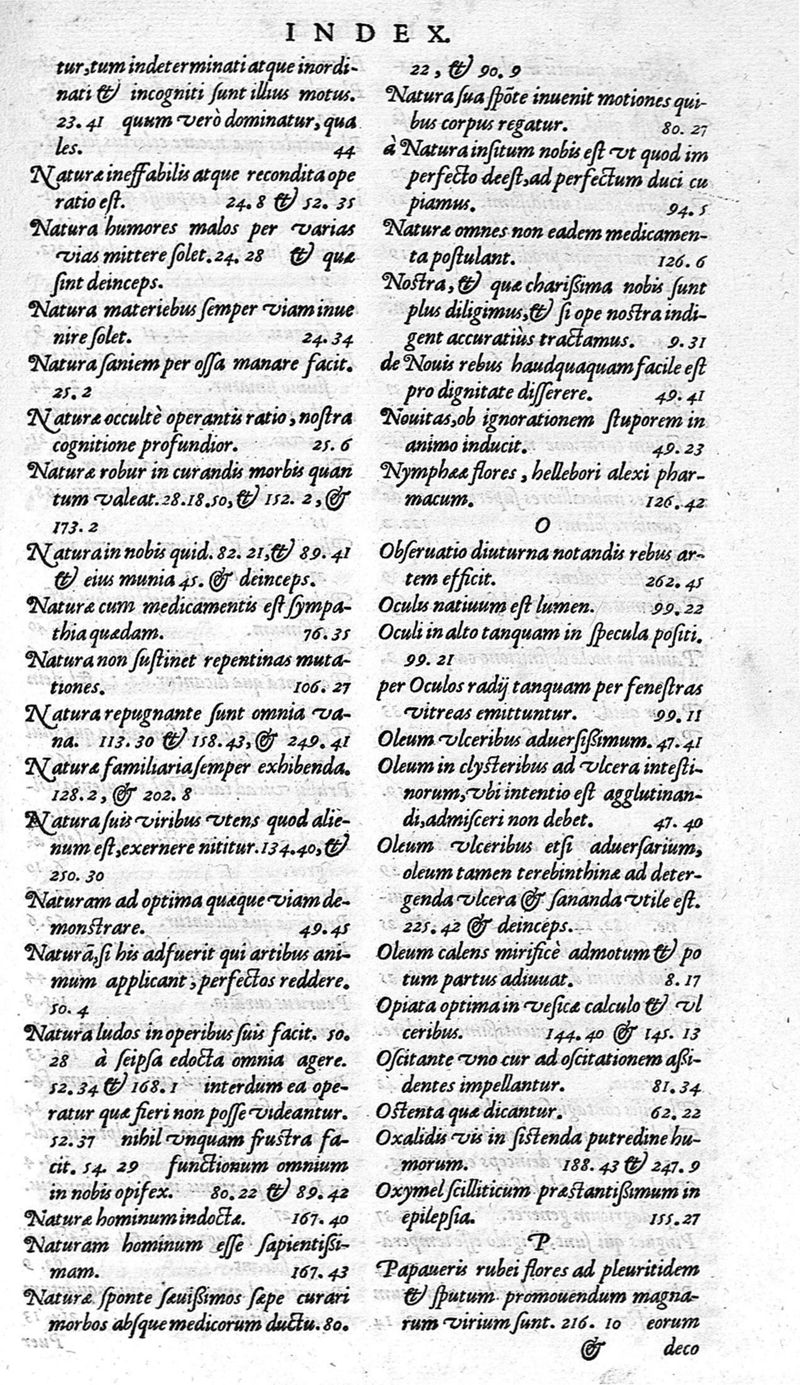 INDEX.
tur, tum indeterminati atque inordi-
nati & incogniti sunt illius motus.
23. 41 quum verò dominatur, qua
les. 44
Naturæ ineffabilis atque recondita ope
ratio est. 24. 8 & 52. 35
Natura humores malos per varias
vias mittere solet. 24. 28 & quæ
sint deinceps.
Natura materiebus semper viam inue
nire solet. 24. 34
Natura saniem per ossa manare facit.
25. 2
Naturæ occultè operantis ratio, nostra
cognitione profundior. 25. 6
Naturæ robur in curandis morbis quan
tum valeat. 28. 18. 50, & 152. 2, &
173. 2
Natura in nobis quid. 82. 21, & 89. 41
& eius munia 45. & deinceps.
Naturæ cum medicamentis est sympa-
thia quædam. 76. 35
Natura non sustinet repentinas muta-
tiones. 106. 27
Natura repugnante sunt omnia va-
na. 113. 30 & 158. 43, & 249. 41
Naturæ familiaria semper exhibenda.
128. 2, & 202. 8
Natura suis viribus vtens quod alie-
num est, exernere nititur. 134. 40, &
250. 30
Naturam ad optima quæque viam de-
monstrare. 49. 45
Naturā, si his adfuerit qui artibus ani-
mum applicant, perfectos reddere.
50. 4
Natura ludos in operibus suis facit. 50.
28 à seipsa edocta omnia agere.
52. 34 & 168. 1 interdum ea ope-
ratur quæ fieri non posse videantur.
52. 37 nihil vnquam frustra fa-
cit. 54. 29 functionum omnium
in nobis opifex. 80. 22 & 89. 42
Naturæ hominum indoctæ. 167. 40
Naturam hominum esse sapientissi-
mam. 167. 43
Naturæ sponte sæuissimos sæpe curari
morbos absque medicorum ductu. 80.
22, & 90. 9
Natura sua spōte inuenit motiones qui-
bus corpus regatur. 80. 27
à Natura insitum nobis est vt quod im
perfecto deest, ad perfectum duci cu
piamus. 94. 5
Naturæ omnes non eadem medicamen-
ta postulant. 126. 6
Nostra, & quæ charissima nobis sunt
plus diligimus, & si ope nostra indi-
gent accuratiùs tractamus. 9. 31
de Nouis rebus haudquaquam facile est
pro dignitate disserere. 49. 41
Nouitas, ob ignorationem stuporem in
animo inducit. 49. 23
Nymphææ flores, hellebori alexi phar-
macum. 126. 42
O
Obseruatio diuturna notandis rebus ar-
tem efficit. 262. 45
Oculus natiuum est lumen. 99. 22
Oculi in alto tanquam in specula positi.
99. 21
per Oculos radij tanquam per fenestras
vitreas emittuntur. 99. 11
Oleum vlceribus aduersissimum. 47. 41
Oleum in clysteribus ad vlcera intesti-
norum, vbi intentio est agglutinan-
di, admisceri non debet. 47. 40
Oleum vlceribus etsi aduersarium,
oleum tamen terebinthinæ ad deter-
genda vlcera & sananda vtile est.
225. 42 & deinceps.
Oleum calens mirificè admotum & po
tum partus adiuuat. 8. 17
Opiata optima in vesicæ calculo & vl
ceribus. 144. 40 & 145. 13
Oscitante vno cur ad oscitationem assi-
dentes impellantur. 81. 34
Ostenta quæ dicantur. 62. 22
Oxalidis vis in sistenda putredine hu-
morum. 188. 43 & 247. 9
Oxymel scilliticum præstantissimum in
epilepsia. 155. 27
P
Papaueris rubei flores ad pleuritidem
& sputum promouendum magna-
rum virium sunt. 216. 10 eorum
& deco